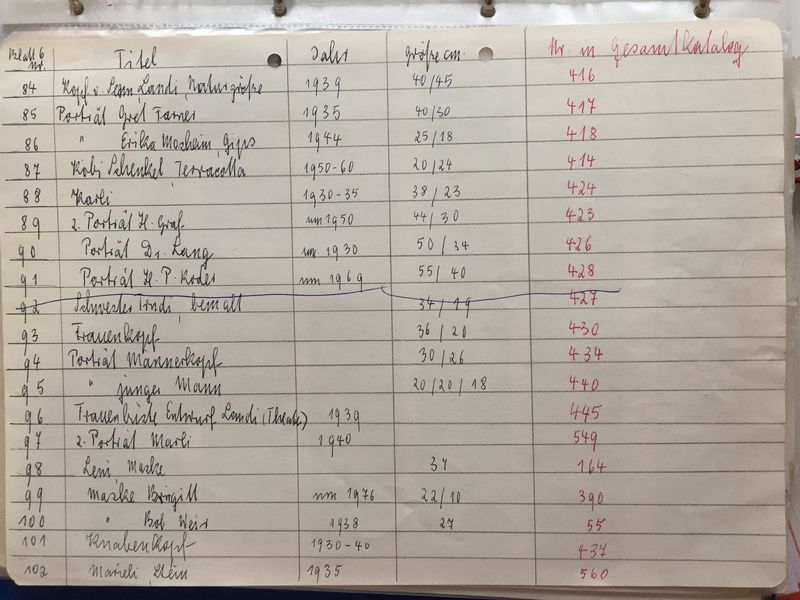 Blatt 6 Nr. Titel Jahr Größe cm. Nr. in Gesamtkatalog
84 Kopf v. Landi, Naturgröße 1939 40/45 416
85 Porträt Gret Farner 1935 40/30 417
86 " Erika Gips 1944 25/18 418
87 Köbi Schenkel, Terracotta 1950-60 20/24 414
88 Karli 1930-35 38/23 424
89 2. Porträt H. Graf um 1950 44/30 423
90 Porträt Dr. Lang um 1930 50/34 426
91 Porträt H. P. um 1969 55/40 428
92 Schwester Trudi, bemalt 34/19 427
93 Frauenkopf 36/20 430
94 Porträt Männerkopf 30/26 434
95 " junger Mann 20/20/18 440
96 Frauenbüste Entwurf Landi (Theater) 1939 445
97 2. Porträt Marli 1940 549
98 Leni Maske 34 164
99 Maske Birgitt um 1976 22/10 390
100 " Bob Weir 1938 27 55
101 Knabenkopf 1930-40 437
102 Marieli 1935 560